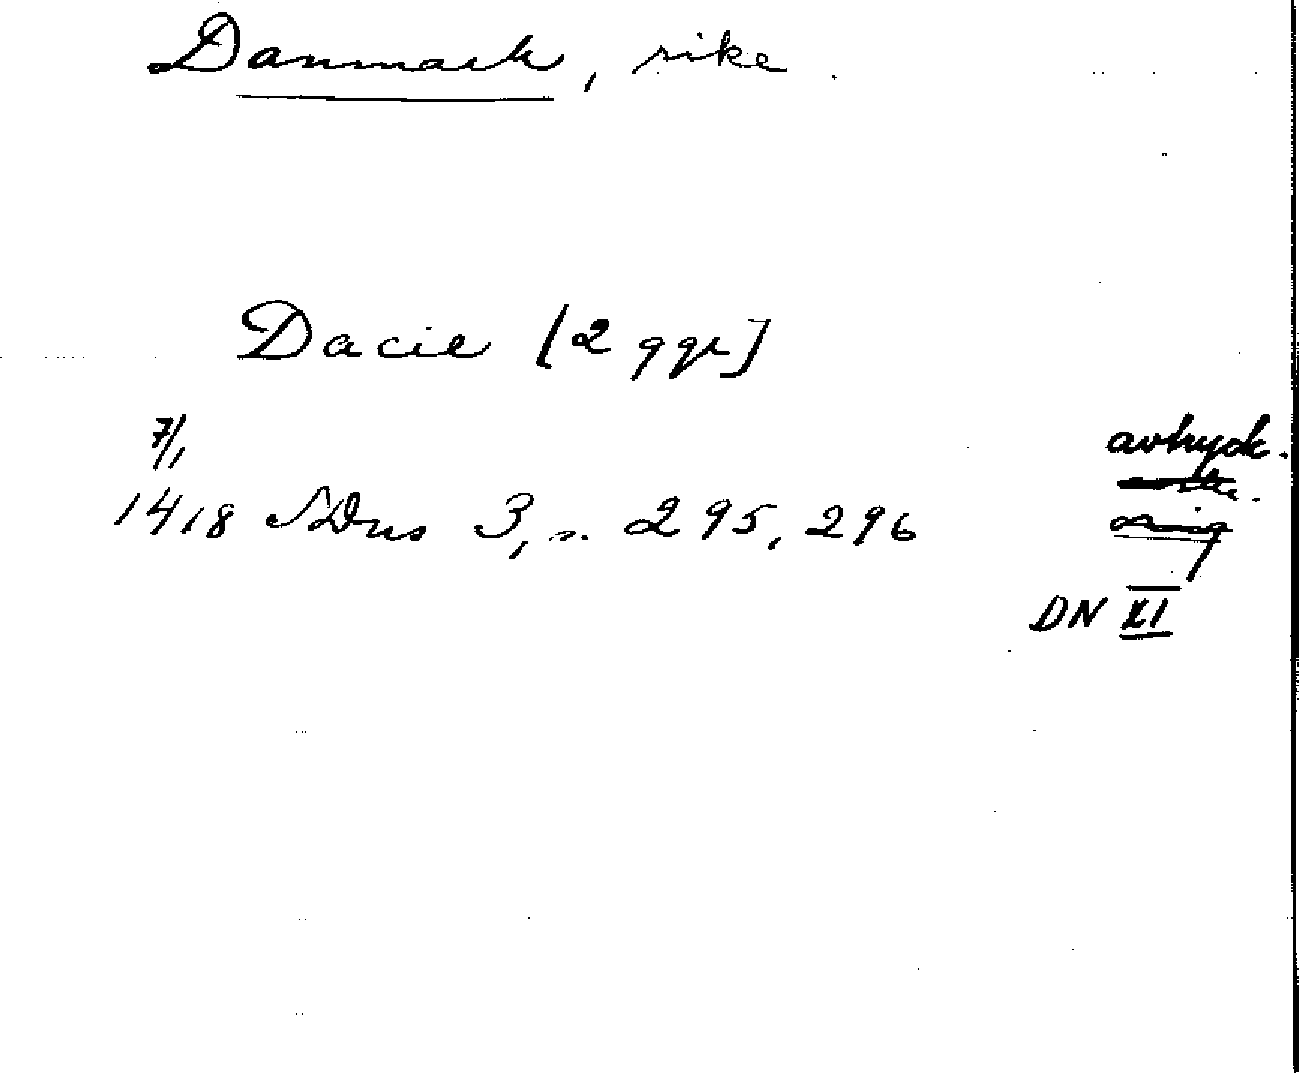 Danmark, rike
Dacie [2 ggr]
7/1
avtryck.
1418 SDns 3, s. 295, 296
orig
DN XI